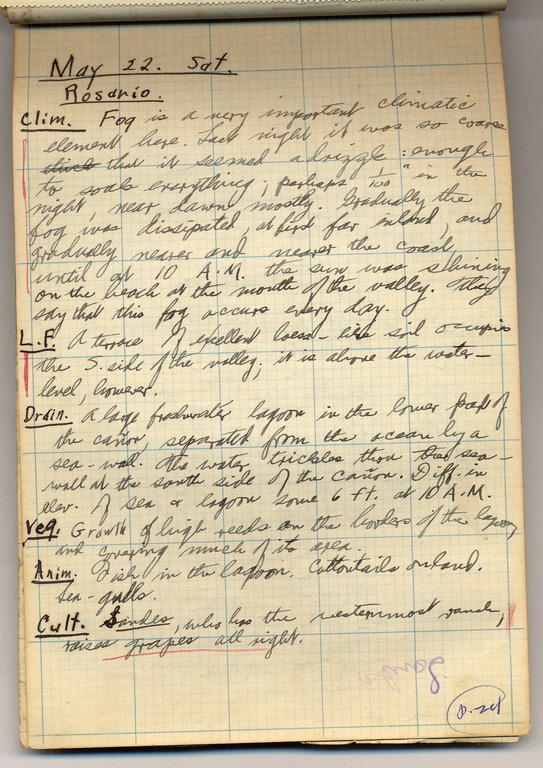 May 22. Sat.
Rosario.
Clim. Fog is a very important climatic
element here. Last night it was so coarse
thick that it seemed a drizzle: enough
to soak everything; perhaps 1/100" in the
night, near dawn mostly. Gradually the
fog was dissipated, at first far inland, and
gradually nearer and nearer the coast
until at 10 A.M. the sun was shining
on the beach at the mouth of the valley. They
say that this fog occurs every day.
L.F. A terrace of excellent loess-like soil occupies
the S. side of the valley; it is above the water-
level, however.
Drain. A large freshwater lagoon in the lower part of
the cañon, separated from the ocean by a
sea-wall. The water trickles thru the sea-
wall at the south side of the cañon. Diff. in
elev. of sea & lagoon some 6 ft. at 10 A.M.
Veg. Growth of high reeds on the borders of the lagoon,
and covering much of its area.
Anim. Fish in the lagoon. Cottontails on land.
Sea-gulls.
Cult. Sandes, who has the westernmost ranch,
raises grapes all right.